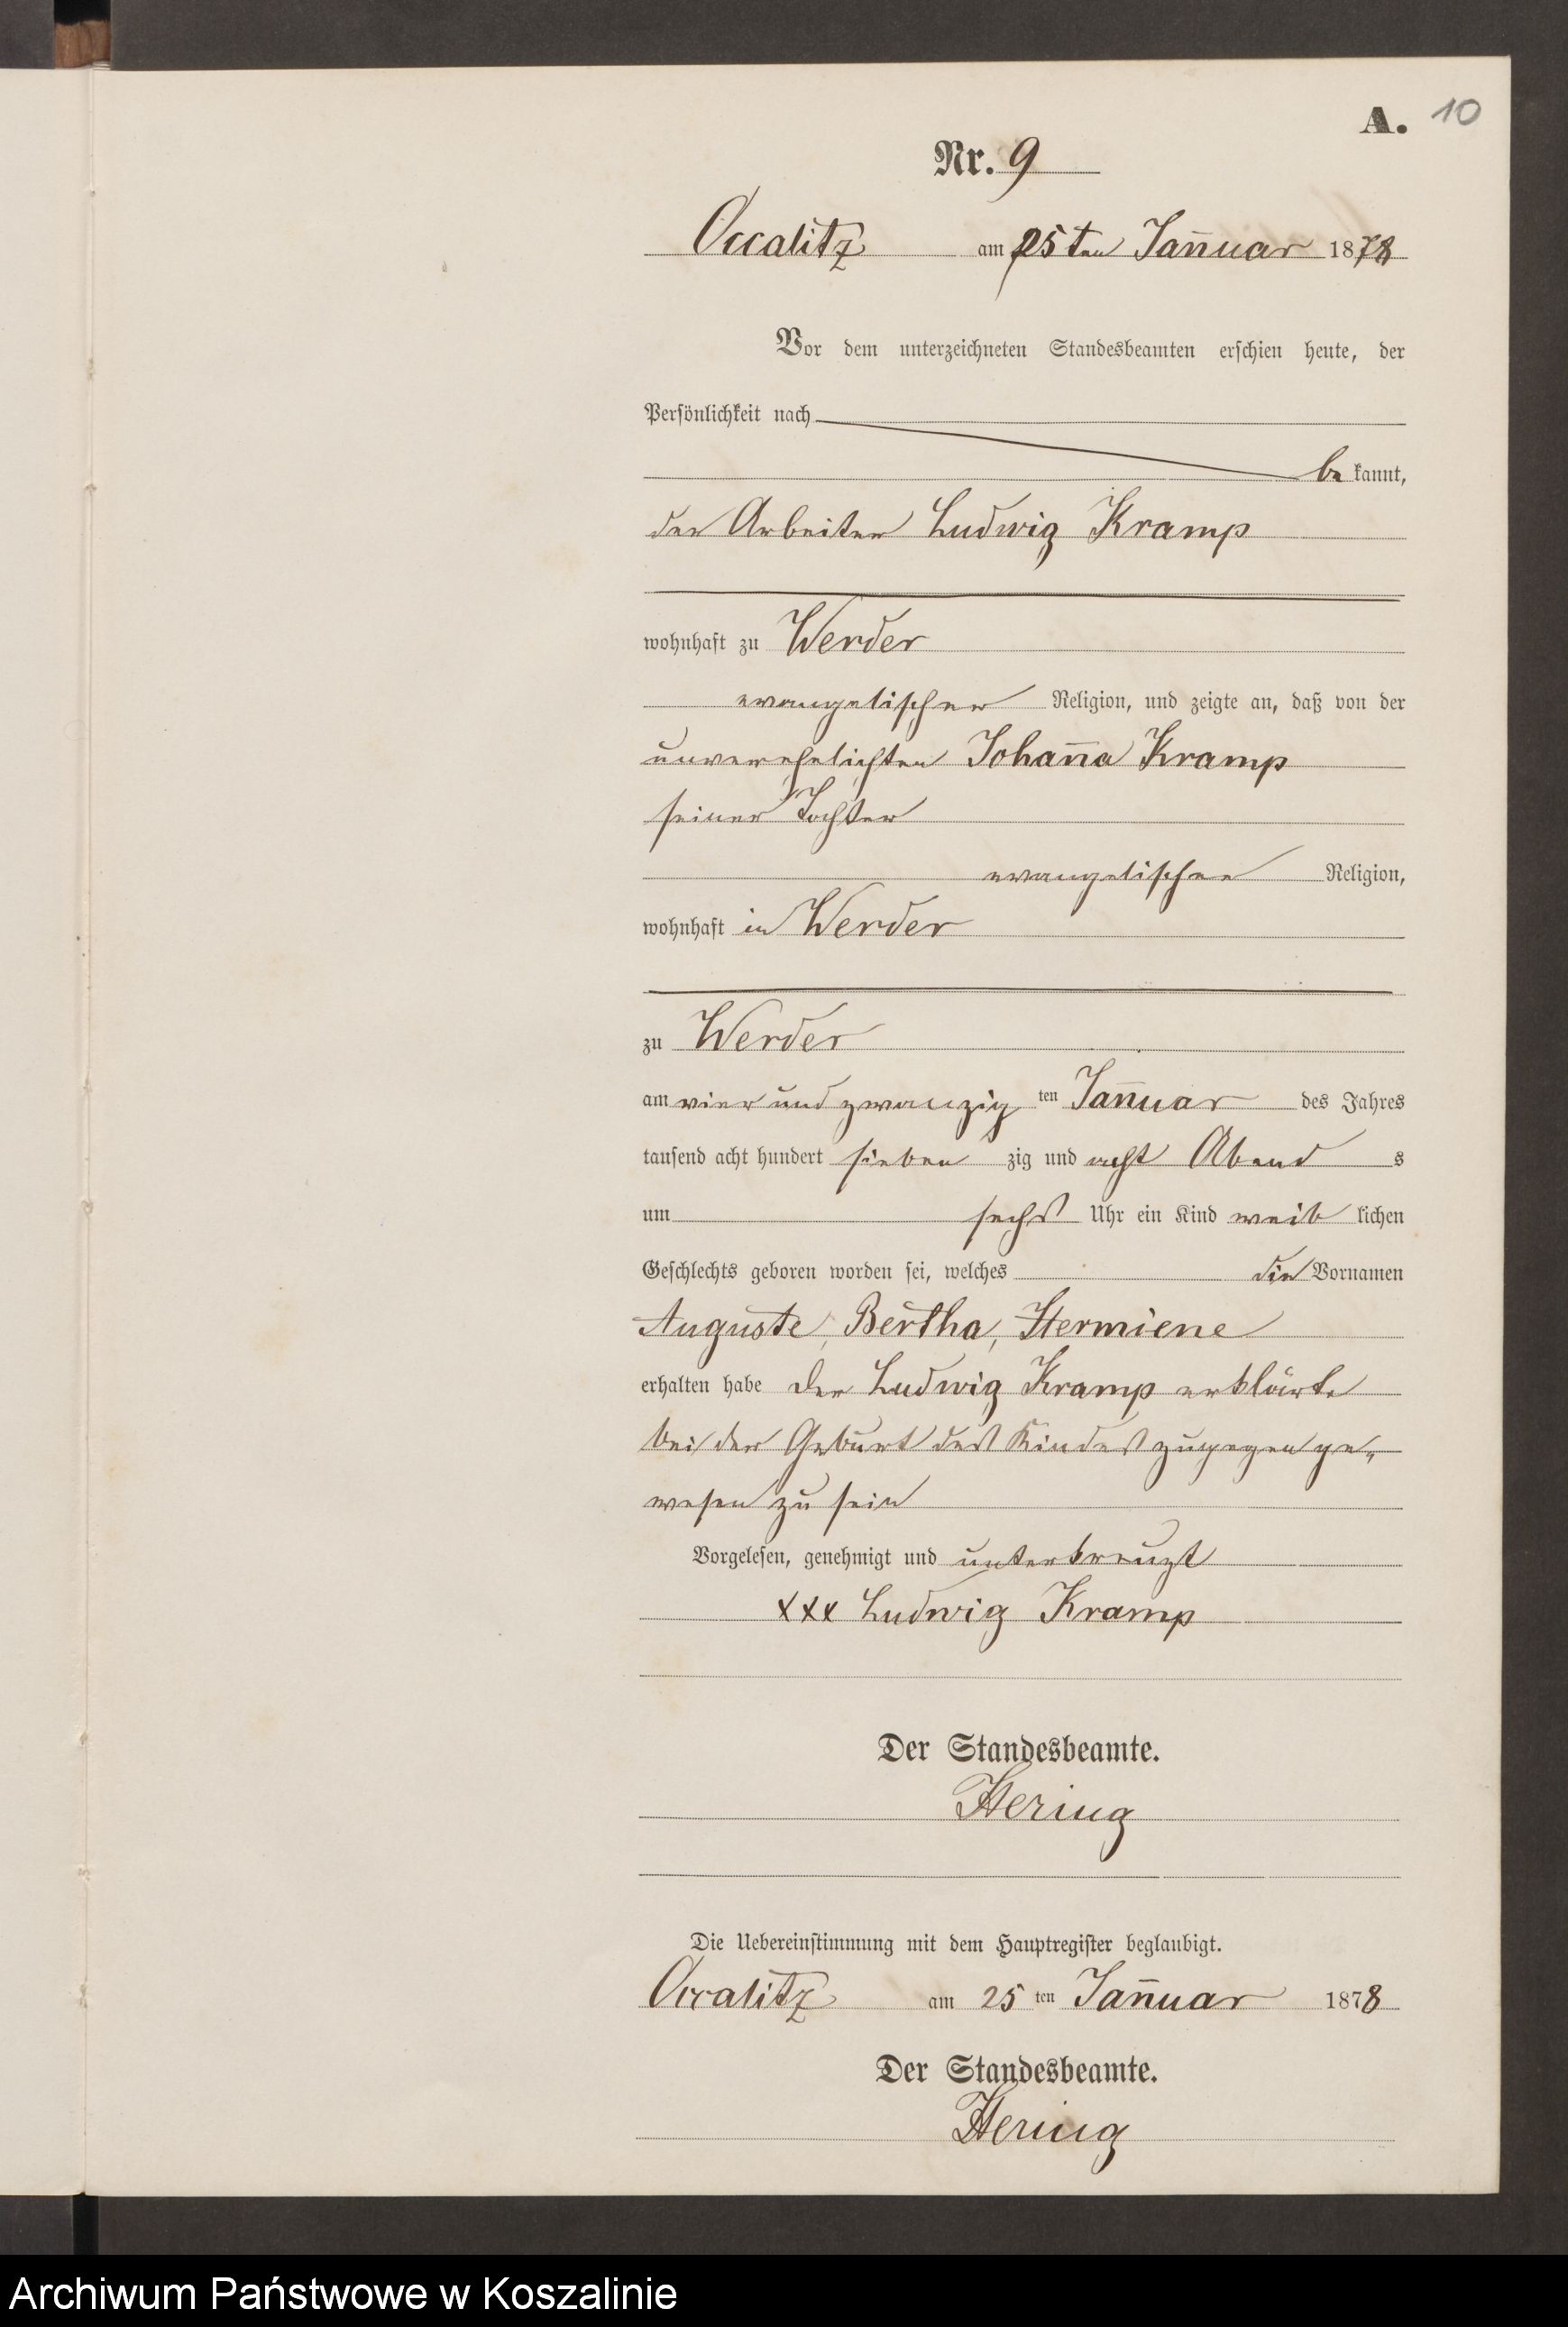 A. 10
Nr. 9
Occalitz am 25ten Jan̄uar 1878
Vor dem unterzeichneten Standesbeamten erschien heute, der
Persönlichkeit nach
be kannt,
der Arbeiter Ludwig Kramp
wohnhaft zu Werder
evangelischer Religion, und zeigte an, daß von der
unverehelichten Johan̄a Kramp
seiner Tochter
evangelischer Religion,
wohnhaft in Werder
zu Werder
am vier und zwanzig ten Jan̄uar des Jahres
tausend acht hundert sieben zig und acht Abend s
um sechs Uhr ein Kind weib lichen
Geschlechts geboren worden sei, welches die Vornamen
Auguste, Bertha, Hermiene
erhalten habe der Ludwig Kramp erklärte
bei der Geburt des Kindes zugegen ge„
wesen zu sein
Vorgelesen, genehmigt und unterkreuzt
xxx Ludwig Kramp
Der Standesbeamte.
Hering
Die Uebereinstimmung mit dem Hauptregister beglaubigt.
Occalitz am 25 ten Jan̄uar 1878
Der Standesbeamte.
Hering
Archiwum Państwowe w Koszalinie